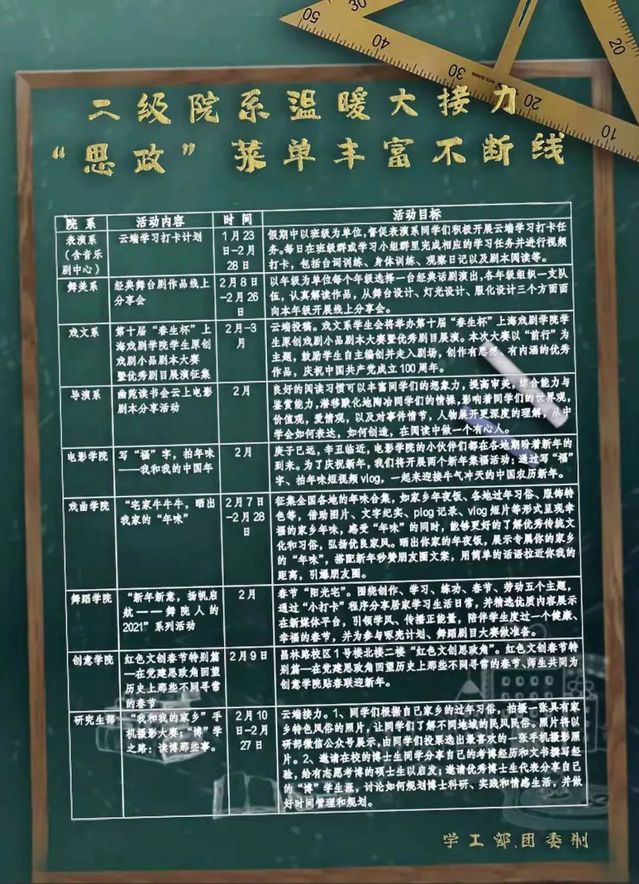 二级院系温暖大接力
“思政”菜单丰富不断线
院系 活动内容 时间 活动目标
表演系
（含音乐
剧中心）
云端学习打卡计划
1月23
日-2月
28日
假期中以班级为单位，督促表演系同学们积极开展云端学习打卡任
务。每日在班级群或学习小组群里完成相应的学习任务并进行视频
打卡，包括台词训练、身体训练、观察日记以及剧本阅读等。
舞美系
经典舞台剧作品线上
分享会
2月8日
-2月26
日
以年级为单位每个年级选择一台经典话剧演出，各年级组织一支队
伍，认真解读作品，从舞台设计、灯光设计、服化设计三个方面面
向本年级开展线上分享会。
戏文系
第十届“春生杯”上
海戏剧学院学生原创
戏剧小品剧本大赛
暨优秀剧目展演征集
2月-3
月
云端投稿。戏文系学生会将举办第十届“春生杯”上海戏剧学院学
生原创戏剧小品剧本大赛暨优秀剧目展演。本次大赛以“前行”为
主题，鼓励学生自主编创并走入剧场，创作有思想、有内涵的优秀
作品，庆祝中国共产党成立100周年。
导演系
幽苑读书会云上电影
剧本分享活动
2月
良好的阅读习惯可以丰富同学们的想象力，提高审美，综合能力与
鉴赏能力，潜移默化地陶冶同学们的情操，影响着同学们的世界观，
价值观，爱情观，以及对事件情节，人物展开更深度的理解，从中
学会如何表达，如何创造，在阅读中做一个有心人。
电影学院
写“福”字，拍年味
——我和我的中国年
2月
庚子已远，辛丑临近，电影学院的小伙伴们都在各地期盼着新年的
到来。为了庆祝新年，我们将开展两个新年集福活动：通过写“福”
字、拍年味短视频vlog，一起来迎接牛气冲天的中国农历新年。
戏曲学院
“宅家牛牛牛，晒出
我家的“年味”
2月7日
-2月28
日
征集全国各地的年味合集，如家乡年夜饭、各地过年习俗、服饰特
色等，借助图片、文字纪实、plog记录、vlog短片等形式呈现幸
福的家乡年味，感受“年味”的同时，能够更好的了解优秀传统文
化和习俗，弘扬优良家风。晒出你家的年夜饭，展示专属你的家乡
的“年味”，搭配新年秒赞朋友圈文案，用简单的话语拉近你我的
距离，引爆朋友圈。
舞蹈学院
“新年新意，扬帆启
航——舞院人的
2021”系列活动
2月
春节“阳光宅”。围绕创作、学习、练功、春节、劳动五个主题，
通过“小打卡”程序分享居家学习生活日常，并精选优质内容展示
在新媒体平台，引领学风、传播正能量，陪伴学生度过一个健康、
幸福的春节，并为参与啄壳计划、舞蹈剧目大赛做准备。
创意学院
红色文创春节特别篇
—在党建思政角回望
历史上那些不同寻常
的春节
2月9日
昌林路校区1号楼北楼二楼“红色文创思政角”。红色文创春节特
别篇—在党建思政角回望历史上那些不同寻常的春节、师生共同为
创意学院贴春联迎新年。
研究生部
“我和我的家乡”手
机摄影大赛；“博”学
之路：读博那些事。
2月10
日-2月
27日
云端接力。1、同学们根据自己家乡的过年习俗，拍摄一张具有家
乡特色风俗的照片，让同学们了解不同地域的民风民俗。照片将以
研部微信公众号展示，由同学们投票选出最喜欢的一张手机摄影照
片。2、邀请在校的博士生同学分享自己的考博经历和文书撰写经
验，给有志愿考博的硕士生以启发；邀请优秀博士生代表分享自己
的“博”学生涯，讨论如何规划博士科研、实践和情感生活，并做
好时间管理和规划。
学工部、团委制